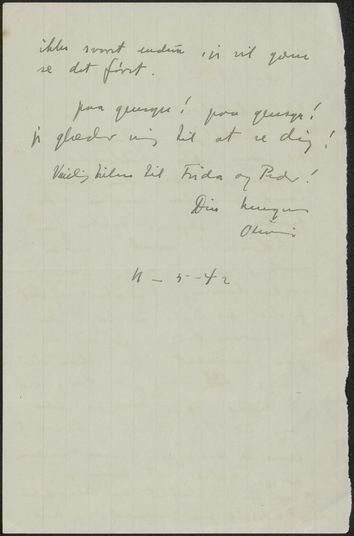 ikke svært endnu, jeg vil gerne
se det først.
paa gensyn! paa gensyn!
jeg glæder mig til at se dig!
Venlig hilsen til Frida og Peder!
Din
11 – 5 – 42